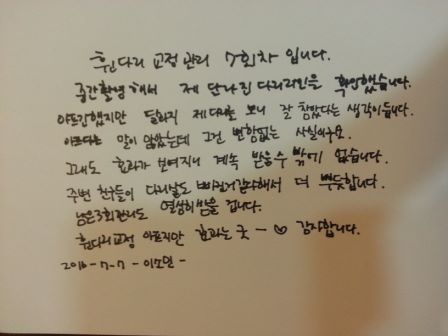 휜다리 교정 관리 7회차 입니다.
중간촬영해서 제 달라진 다리라인을 확인했습니다.
아프긴했지만 달라진 제 다리를 보니 잘 참았다는 생각이듭니다.
아프다는 말이 많았는데 그건 변함없는 사실이구요.
그래도 효과가 보여지니 계속 받을수 밖에 없습니다.
주변 친구들이 다리살도 빠진거같다해서 더 뿌듯합니다.
남은3회관리도 열심히 받을 겁니다.
휜다리교정 아프지만 효과는 굿 ~ ♡ 감사합니다.
2016-7-7 -